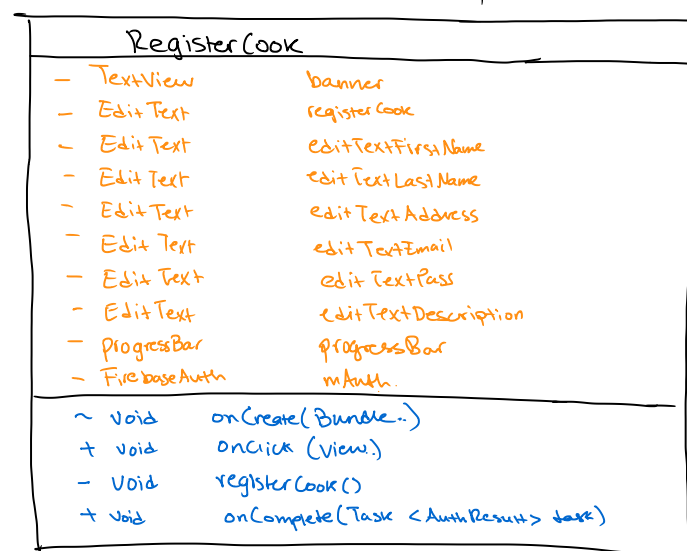 RegisterCook
- TextView banner
- EditText registerCook
- EditText editTextFirstName
- EditText editTextLastName
- EditText editTextAddress
- EditText editTextEmail
- EditText editTextPass
- EditText editTextDescription
- progressBar progressBar
- FirebaseAuth mAuth.
~ void onCreate(Bundle..)
+ void onClick (View.)
- void registerCook()
+ void onComplete(Task <AuthResult> task)